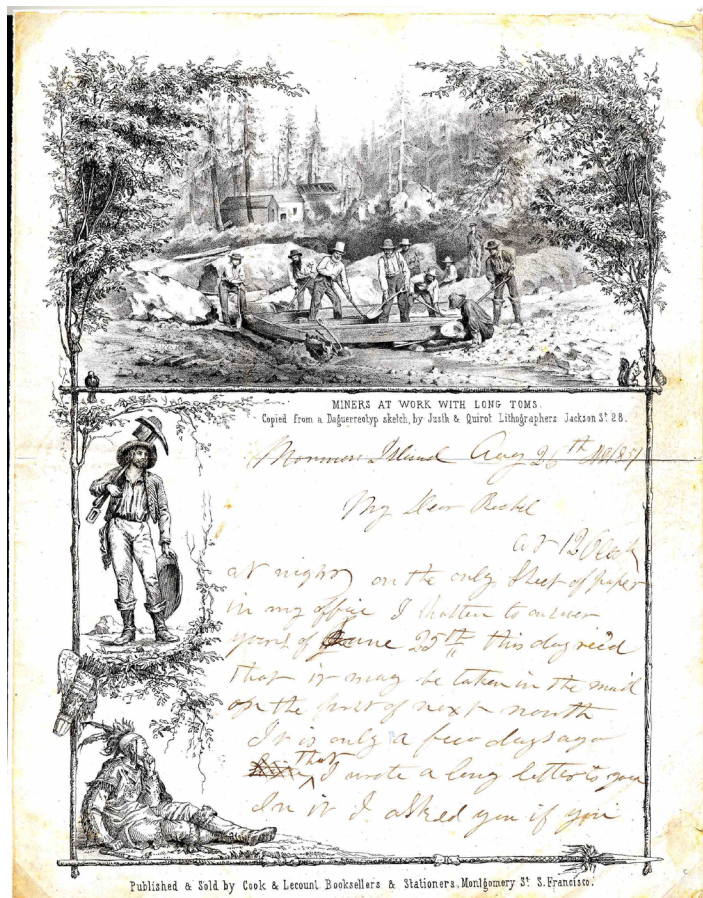 MINERS AT WORK WITH LONG TOMS.
Copied from a Daguerreotyp sketch, by Justh & Quirot Lithographers Jackson St. 28.
Mormon Island Aug 26th 1851
My Dear
at 12 Oclock
at night on the only Sheet of paper
in my office I hasten to answer
yours of June 25th this day rec'd
that it may be taken in the mail
of the first of next month
It is only a few days ago
that I wrote a long letter to you
In it I asked you if you
Published & Sold by Cook & Lecount Booksellers & Stationers, Montgomery St. S. Francisco.